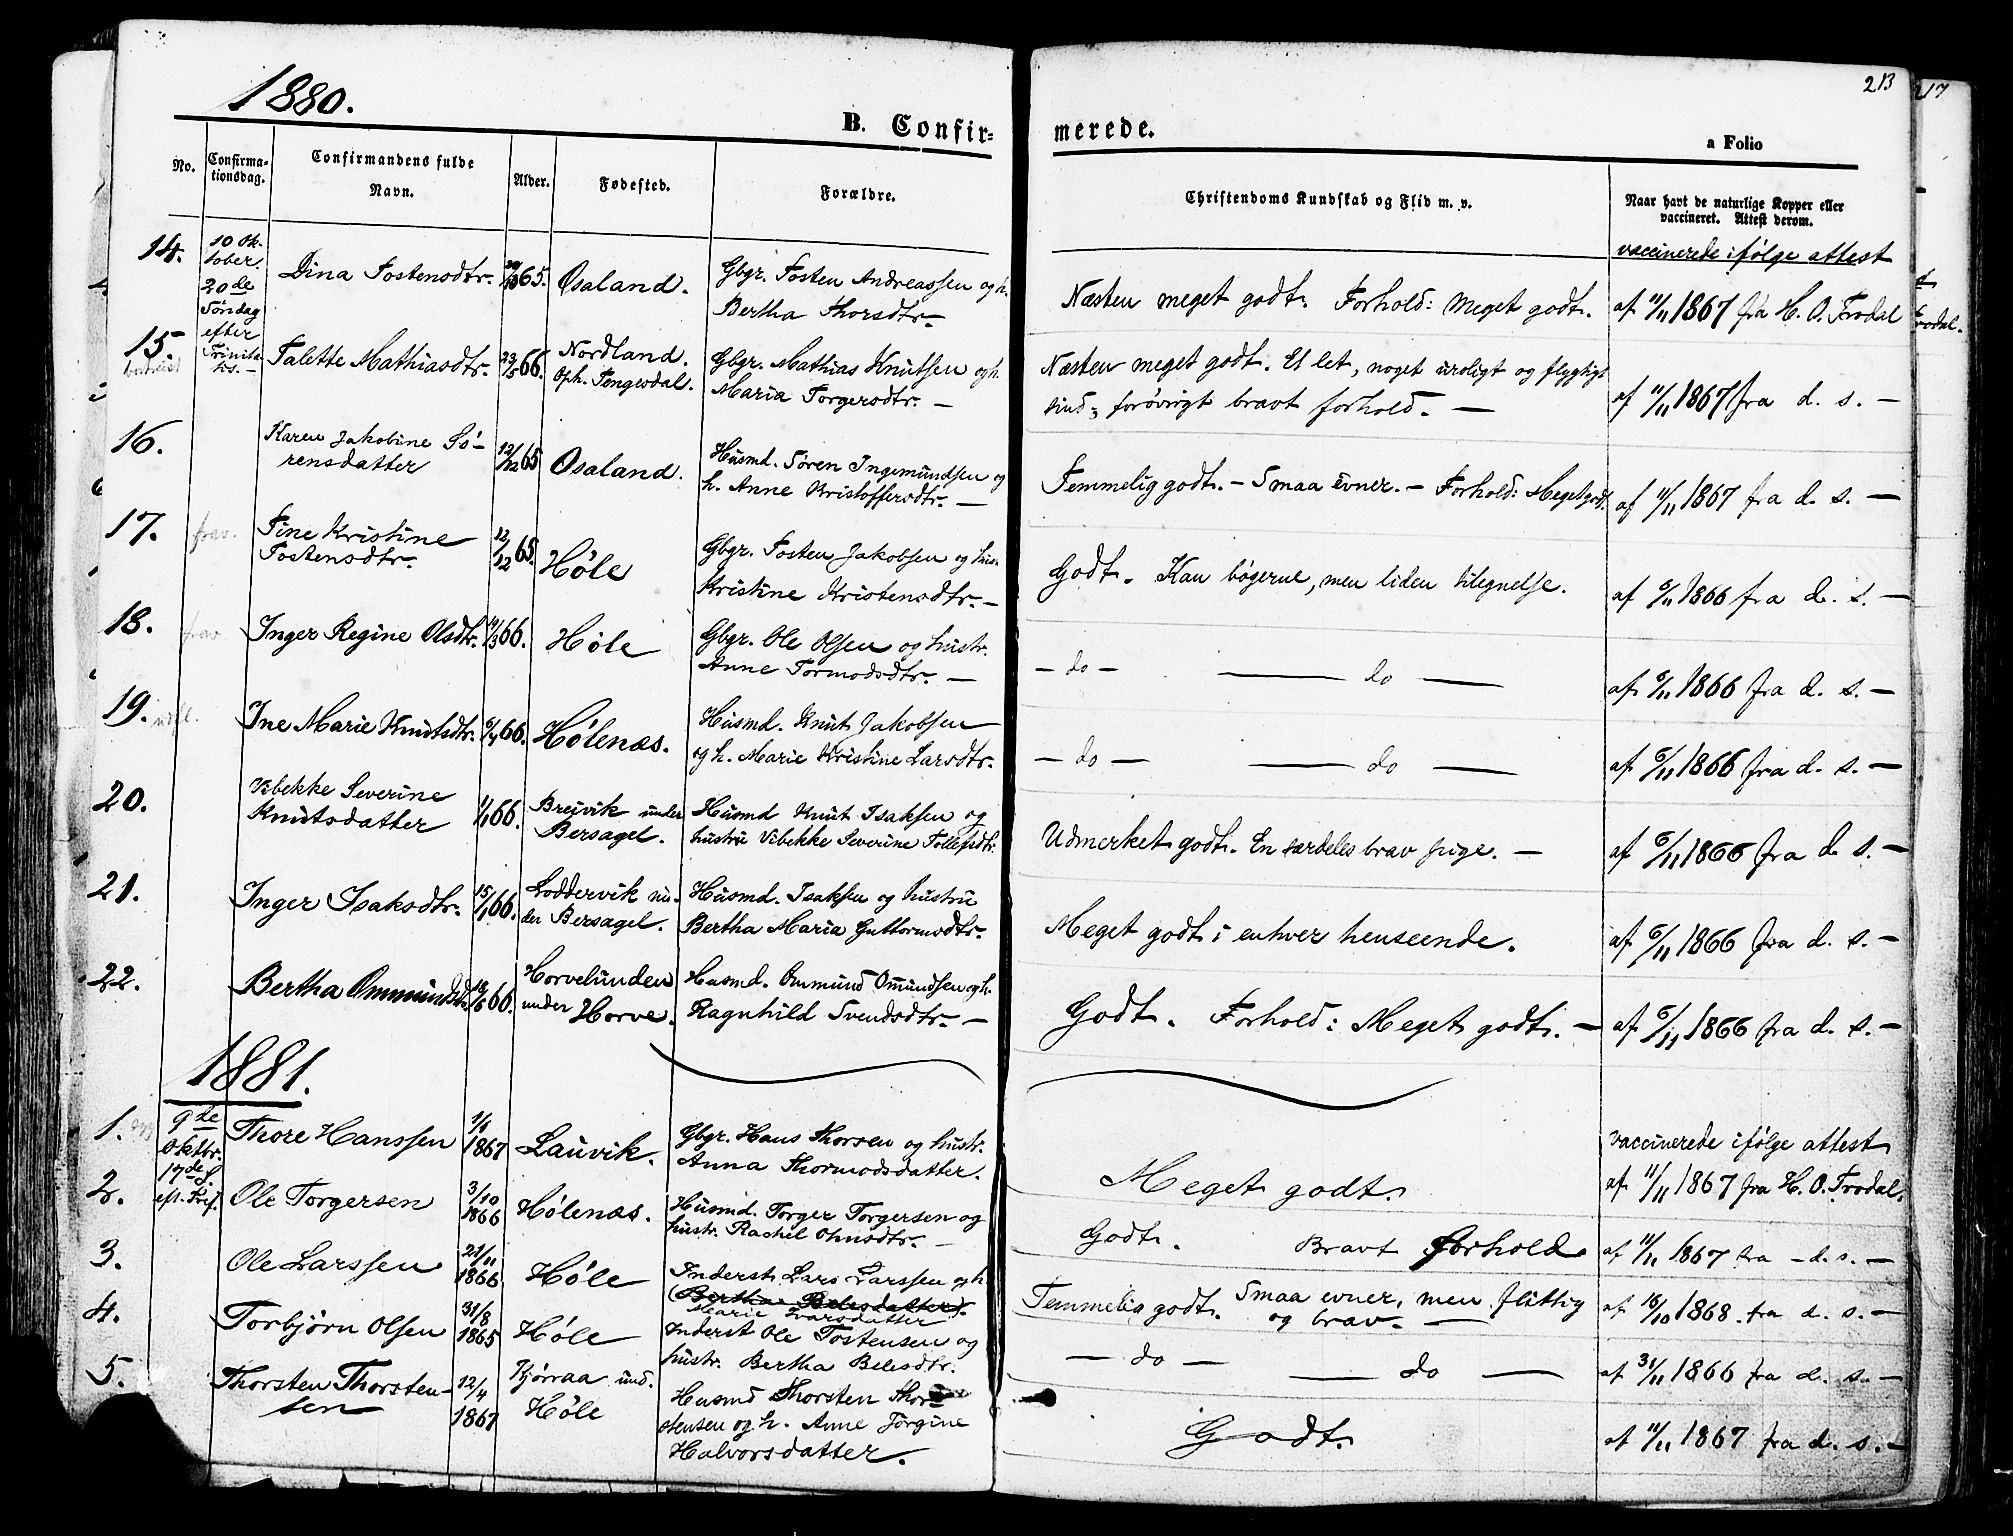 213
17
1880.
B. Confir-
merede.
a Folio
No.
Confirma-
tionsdag.
Confirmandens fulde
Navn.
Alder.
Fødested.
Forældre.
Christendoms Kundskab og Flid m. v.
Naar havt de naturlige Kopper eller
vaccineret. Attest derom.
vaccinerede ifølge attest
14.
10 Ok-
tober.
20de
Søndag
efter
Trinita-
tis. -
Dina Tostensdtr.
65.
Osaland.
Gbgr. Tosten Andreassen og h.
Bertha Thorsdtr. -
Næsten meget godt. Forhold: Meget godt.
af 11/11 1867 fra H. O. Frodal
15.
Talette Mathiasdtr.
23/5 66.
Nordland.
Oph. Tengesdal.
Gbgr. Mathias Knutsen og h.
Maria Torgersdtr. -
Næsten meget godt. Et let, noget uroligt og flygtigt
sind; forøvrigt bravt forhold. -
af 11/11 1867 fra d. s. -
16.
Karen Jakobine Sö-
rensdatter
12/12 65
Osaland.
Husmd. Sören Ingemundsen og
h. Anne Kristoffersdtr. -
Temmelig godt. - Smaa evner. - Forhold: Meget godt.
af 11/11 1867 fra d. s. -
17.
frav.
Tine Kristine
Tostensdtr.
12/12 65.
Høle
Gbgr. Tosten Jakobsen og hus.
Kristine Kristensdtr. -
Godt. Kan bøgerne, men liden tilegnelse.
af 6/11 1866 fra d. s. -
18.
frav
Inger Regine Olsdtr.
14/3 66.
Høle
Gbgr. Ole Olsen og hustr.
Anne Tormodsdtr. -
- do - - do -
af 6/11 1866 fra d. s. -
19.
Ine Marie Knutsdtr.
6/4 66.
Hølenæs.
Husmd. Knut Jakobsen
og h. Marie Kristine Larsdtr.
- do - - do -
af 6/11 1866 fra d. s. -
20.
Vibekke Severine
Knutsdatter
1/1 66.
Breivik under
Bersagel.
Husmd Knut Isaksen og
hustru Vibekke Severine Tollefsdtr.
Udmerket godt. En særdeles brav pige. -
af 6/11 1866 fra d. s. -
21.
Inger Isaksdtr.
15/1 66.
Loddervik un-
der Bersagel.
Husmd. Isaksen og hustru
Bertha Maria Guttormsdtr.
Meget godt i enhver henseende.
af 6/11 1866 fra d. s. -
22.
Bertha Ommundsdtr.
66.
Horvelunden
under Horve.
Husmd. Ommund Omundsen og h.
Ragnhild Svendsdtr. -
Godt. Forhold: Meget godt. -
af 6/11 1866 fra d. s. -
1881.
1.
9de
Oktbr.
17de S.
eft. Tref.
Thore Hanssen
1867
Lauvik.
Gbgr. Hans Thorsen og hustr.
Anna Thormodsdatter.
Meget godt.
vaccinerede ifølge attest
af 11/11 1867 fra H. O. Frodal.
2.
Ole Torgersen
3/10
1866
Hølenæs.
Husmd. Torger Torgersen og
hustr. Rachel Ohnsdtr. -
Godt. Bravt forhold
af 11/11 1867 fra - d. s. -
3.
Ole Larssen
21/11
1866
Høle
Inderst Lars Larssen og h
(Bertha Belesdatter).
Marie Larsdatter
Temmelig godt. Smaa evner, men flittig
og brav. -
af 16/10 1868. fra d. s. -
4.
Torbjørn Olsen
31/8
1865
Høle
Inderst Ole Tostensen og
hustr. Bertha Belesdtr.
- do - - do -
af 3/11 1866 fra d. s. -
5.
Thorsten Thorsten-
sen
12/4
1867
Kjørraa und.
Høle
Husmd Thorsten Thor-
stensen og h. Anne Jørgine
Halvorsdatter.
Godt.
af 11/11 1867 fra d. s. -